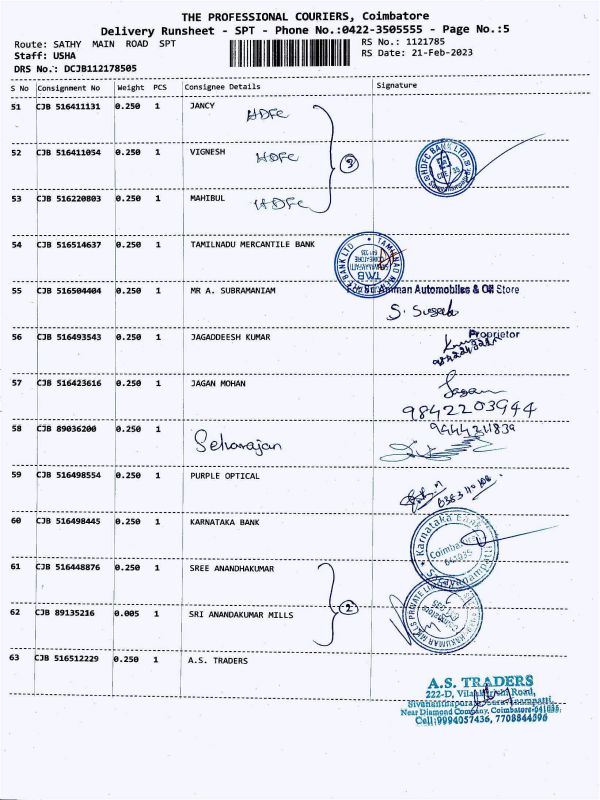 THE PROFESSIONAL COURIERS, Coimbatore
Delivery Runsheet - SPT - Phone No.:0422-3505555 - Page No.:5
Route: SATHY MAIN ROAD SPT
RS No.: 1121785
Staff: USHA
RS Date: 21-Feb-2023
DRS No.: DCJB112178505
S No Consignment No Weight PCS Consignee Details Signature
51 CJB 516411131 0.250 1 JANCY
HDFC
52 CJB 516411054 0.250 1 VIGNESH
HDFC
3
HDFC BANK LTD.
53 CJB 516220803 0.250 1 MAHIBUL
HDFC
54 CJB 516514637 0.250 1 TAMILNADU MERCANTILE BANK
TMB
55 CJB 516504404 0.250 1 MR A. SUBRAMANIAM
Amman Automobiles & Oil Store
S.
Proprietor
56 CJB 516493543 0.250 1 JAGADDEESH KUMAR
57 CJB 516423616 0.250 1 JAGAN MOHAN
Jagan
9842203944
58 CJB 89036200 0.250 1
Selvarajan
9444211839
59 CJB 516498554 0.250 1 PURPLE OPTICAL
60 CJB 516498445 0.250 1 KARNATAKA BANK
Karnataka Bank
Coimbatore
641035
61 CJB 516448876 0.250 1 SREE ANANDHAKUMAR
2
62 CJB 89135216 0.005 1 SRI ANANDAKUMAR MILLS
MILLS PRIVATE
63 CJB 516512229 0.250 1 A.S. TRADERS
A.S. TRADERS
222-D, Road,
Near Diamond Company, Coimbatore-641035.
Cell:9994057436, 7708844596